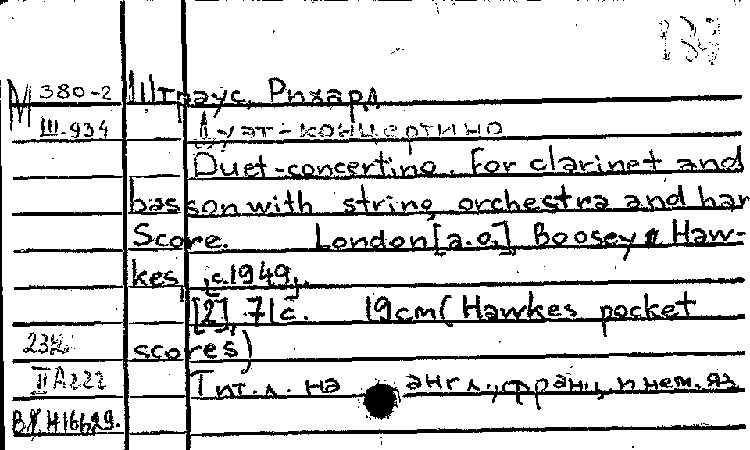 134
М 380-2 Штраус, Рихард
III-934 Дуэт-концертино
Duet-concertino. For clarinet and
basson with string orchestra and har
Score. London [a.o.], Boosey & Haw-
kes, c.1949.
[2], 71 с. 19cm (Hawkes pocket
scores)
II A222 Тит. л. на англ., франц. и нем. яз